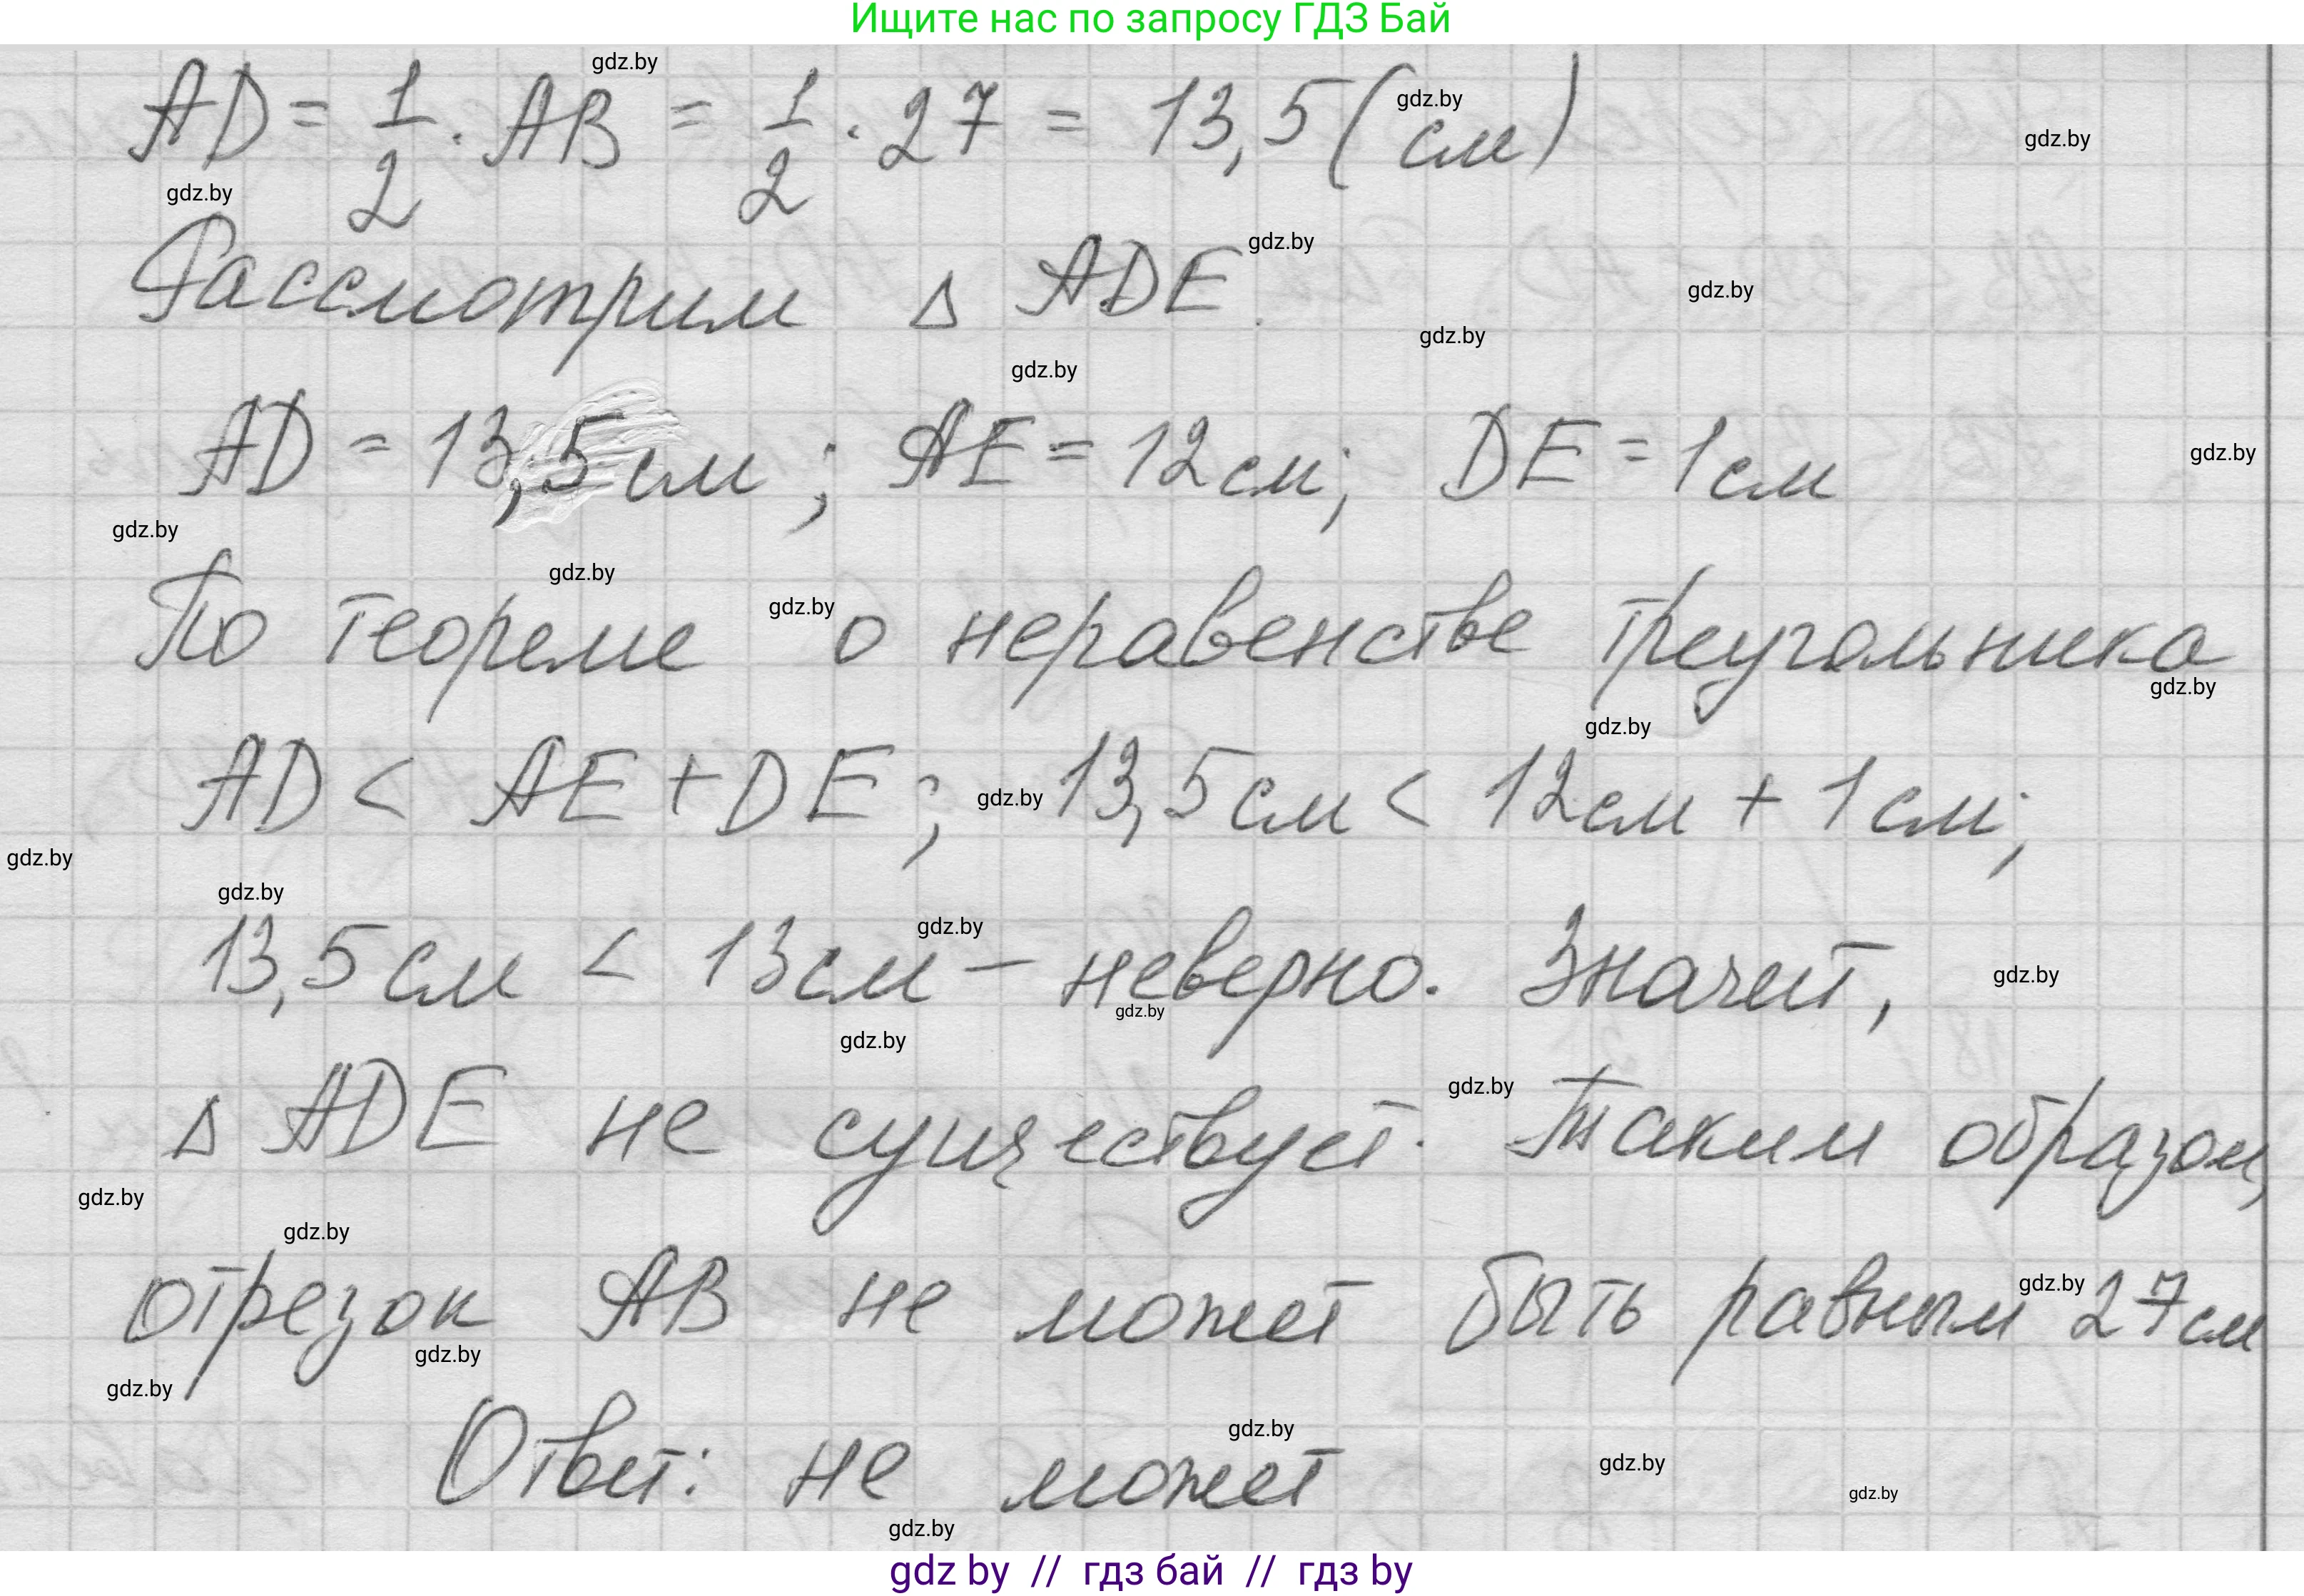 Ищите нас по запросу ГДЗ Бай
gdz.by
AD = 1/2 · AB = 1/2 · 27 = 13,5 (см)
gdz.by
gdz.by
gdz.by
Рассмотрим △ ADE.
gdz.by
gdz.by
gdz.by
gdz.by
AD = 13,5 см ; AE = 12 см; DE = 1 см
gdz.by
gdz.by
gdz.by
gdz.by
По теореме о неравенстве треугольника
gdz.by
gdz.by
AD < AE + DE ; 13,5 см < 12 см + 1 см;
gdz.by
gdz.by
gdz.by
gdz.by
13,5 см < 13 см – неверно. Значит,
gdz.by
gdz.by
gdz.by
gdz.by
△ ADE не существует. Таким образом,
gdz.by
gdz.by
gdz.by
отрезок AB не может быть равным 27 см
gdz.by
gdz.by
gdz.by
Ответ: не может
gdz.by
gdz.by
gdz.by
gdz by // гдз бай // гдз by